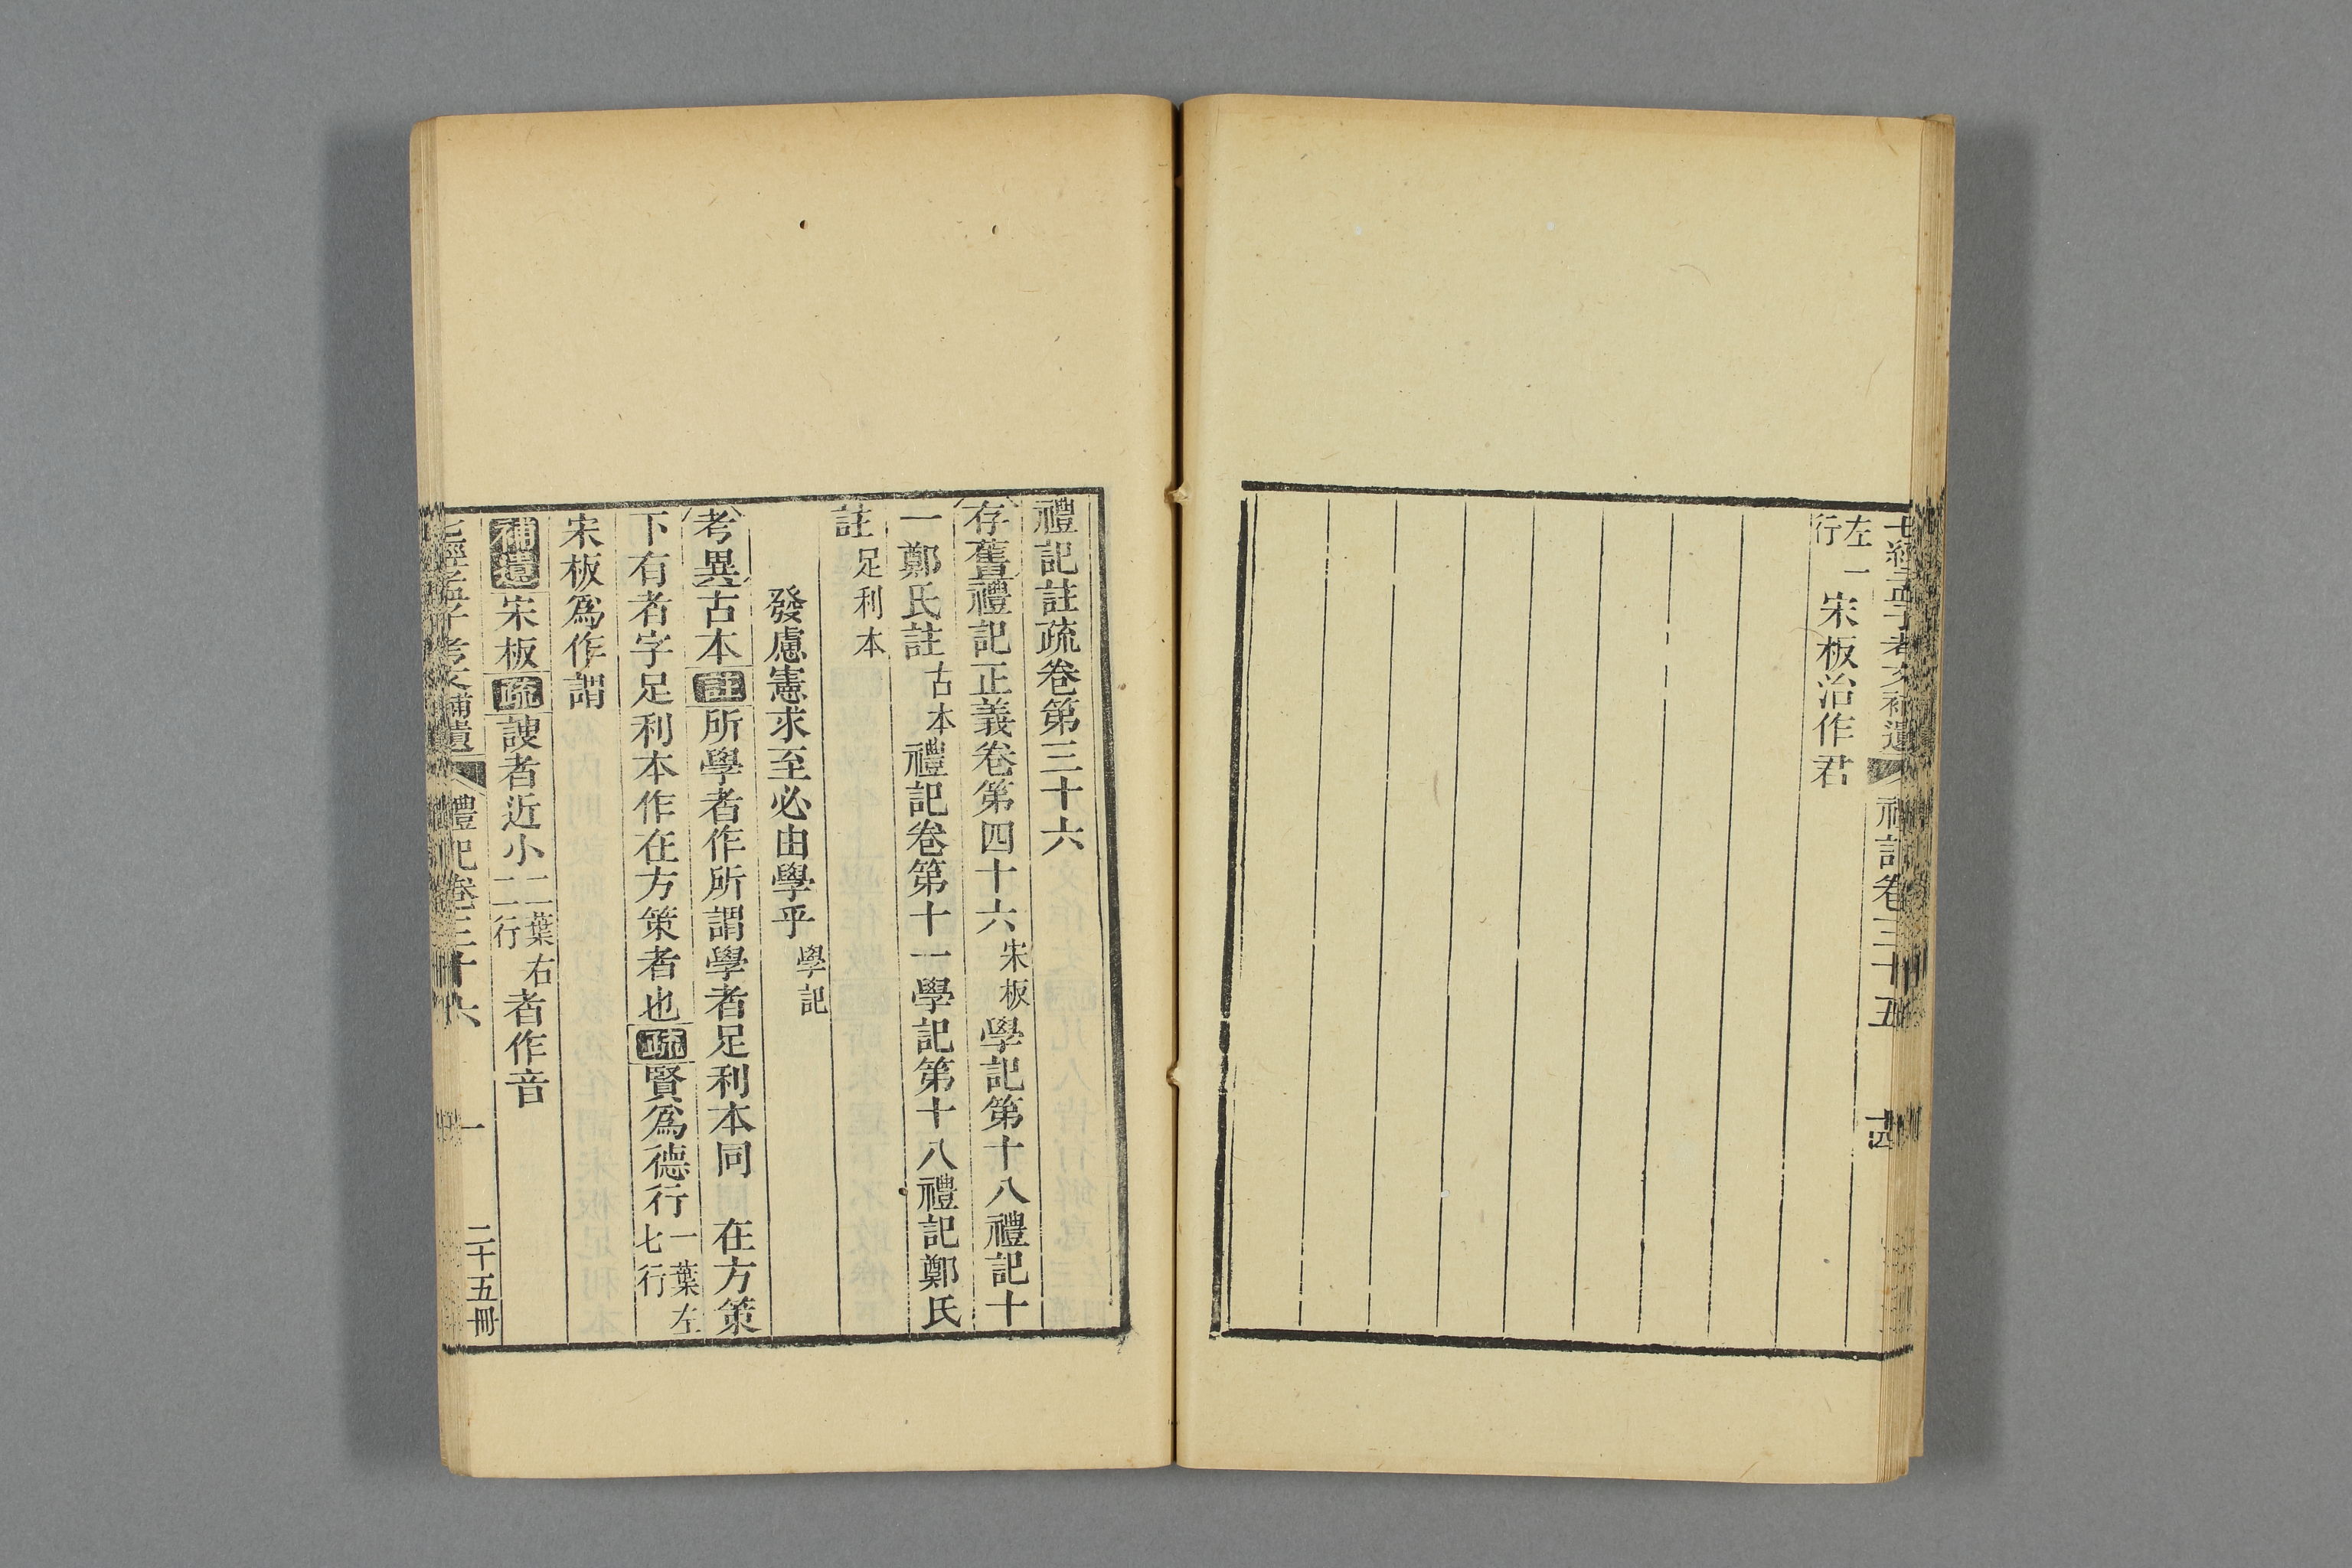 七經孟子考文補遺 禮記卷三十五 十四
左一行 宋板治作君
禮記註疏卷第三十六
存舊禮記正義卷第四十六宋板學記第十八禮記十
一鄭氏註古本禮記卷第十一學記第十八禮記鄭氏
註足利本
發慮憲求至必由學乎學記
考異古本註所學者作所謂學者足利本同 在方策
下有者字足利本作在方策者也疏賢爲德行一葉左七行
宋板爲作謂
補遺宋板疏謏者近小二葉右二行者作音
七經孟子考文補遺 禮記卷三十六 一 二十五冊